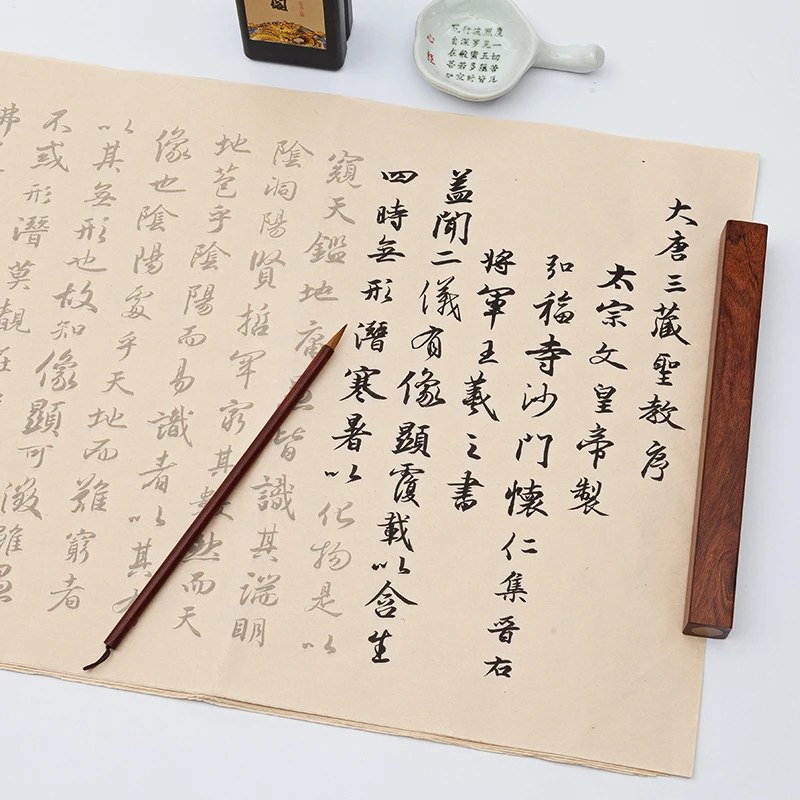 大唐三藏聖教序
太宗文皇帝製
弘福寺沙門懷仁集晉右
將軍王羲之書
蓋聞二儀有像顯覆載以含生
四時無形潛寒暑以化物是以
窺天鑑地庸愚皆識其端明
陰洞陽賢哲罕窮其數然而天
地苞乎陰陽而易識者以其有
像也陰陽處乎天地而難窮者
以其無形也故知像顯可徵雖愚
不惑形潛莫覩在